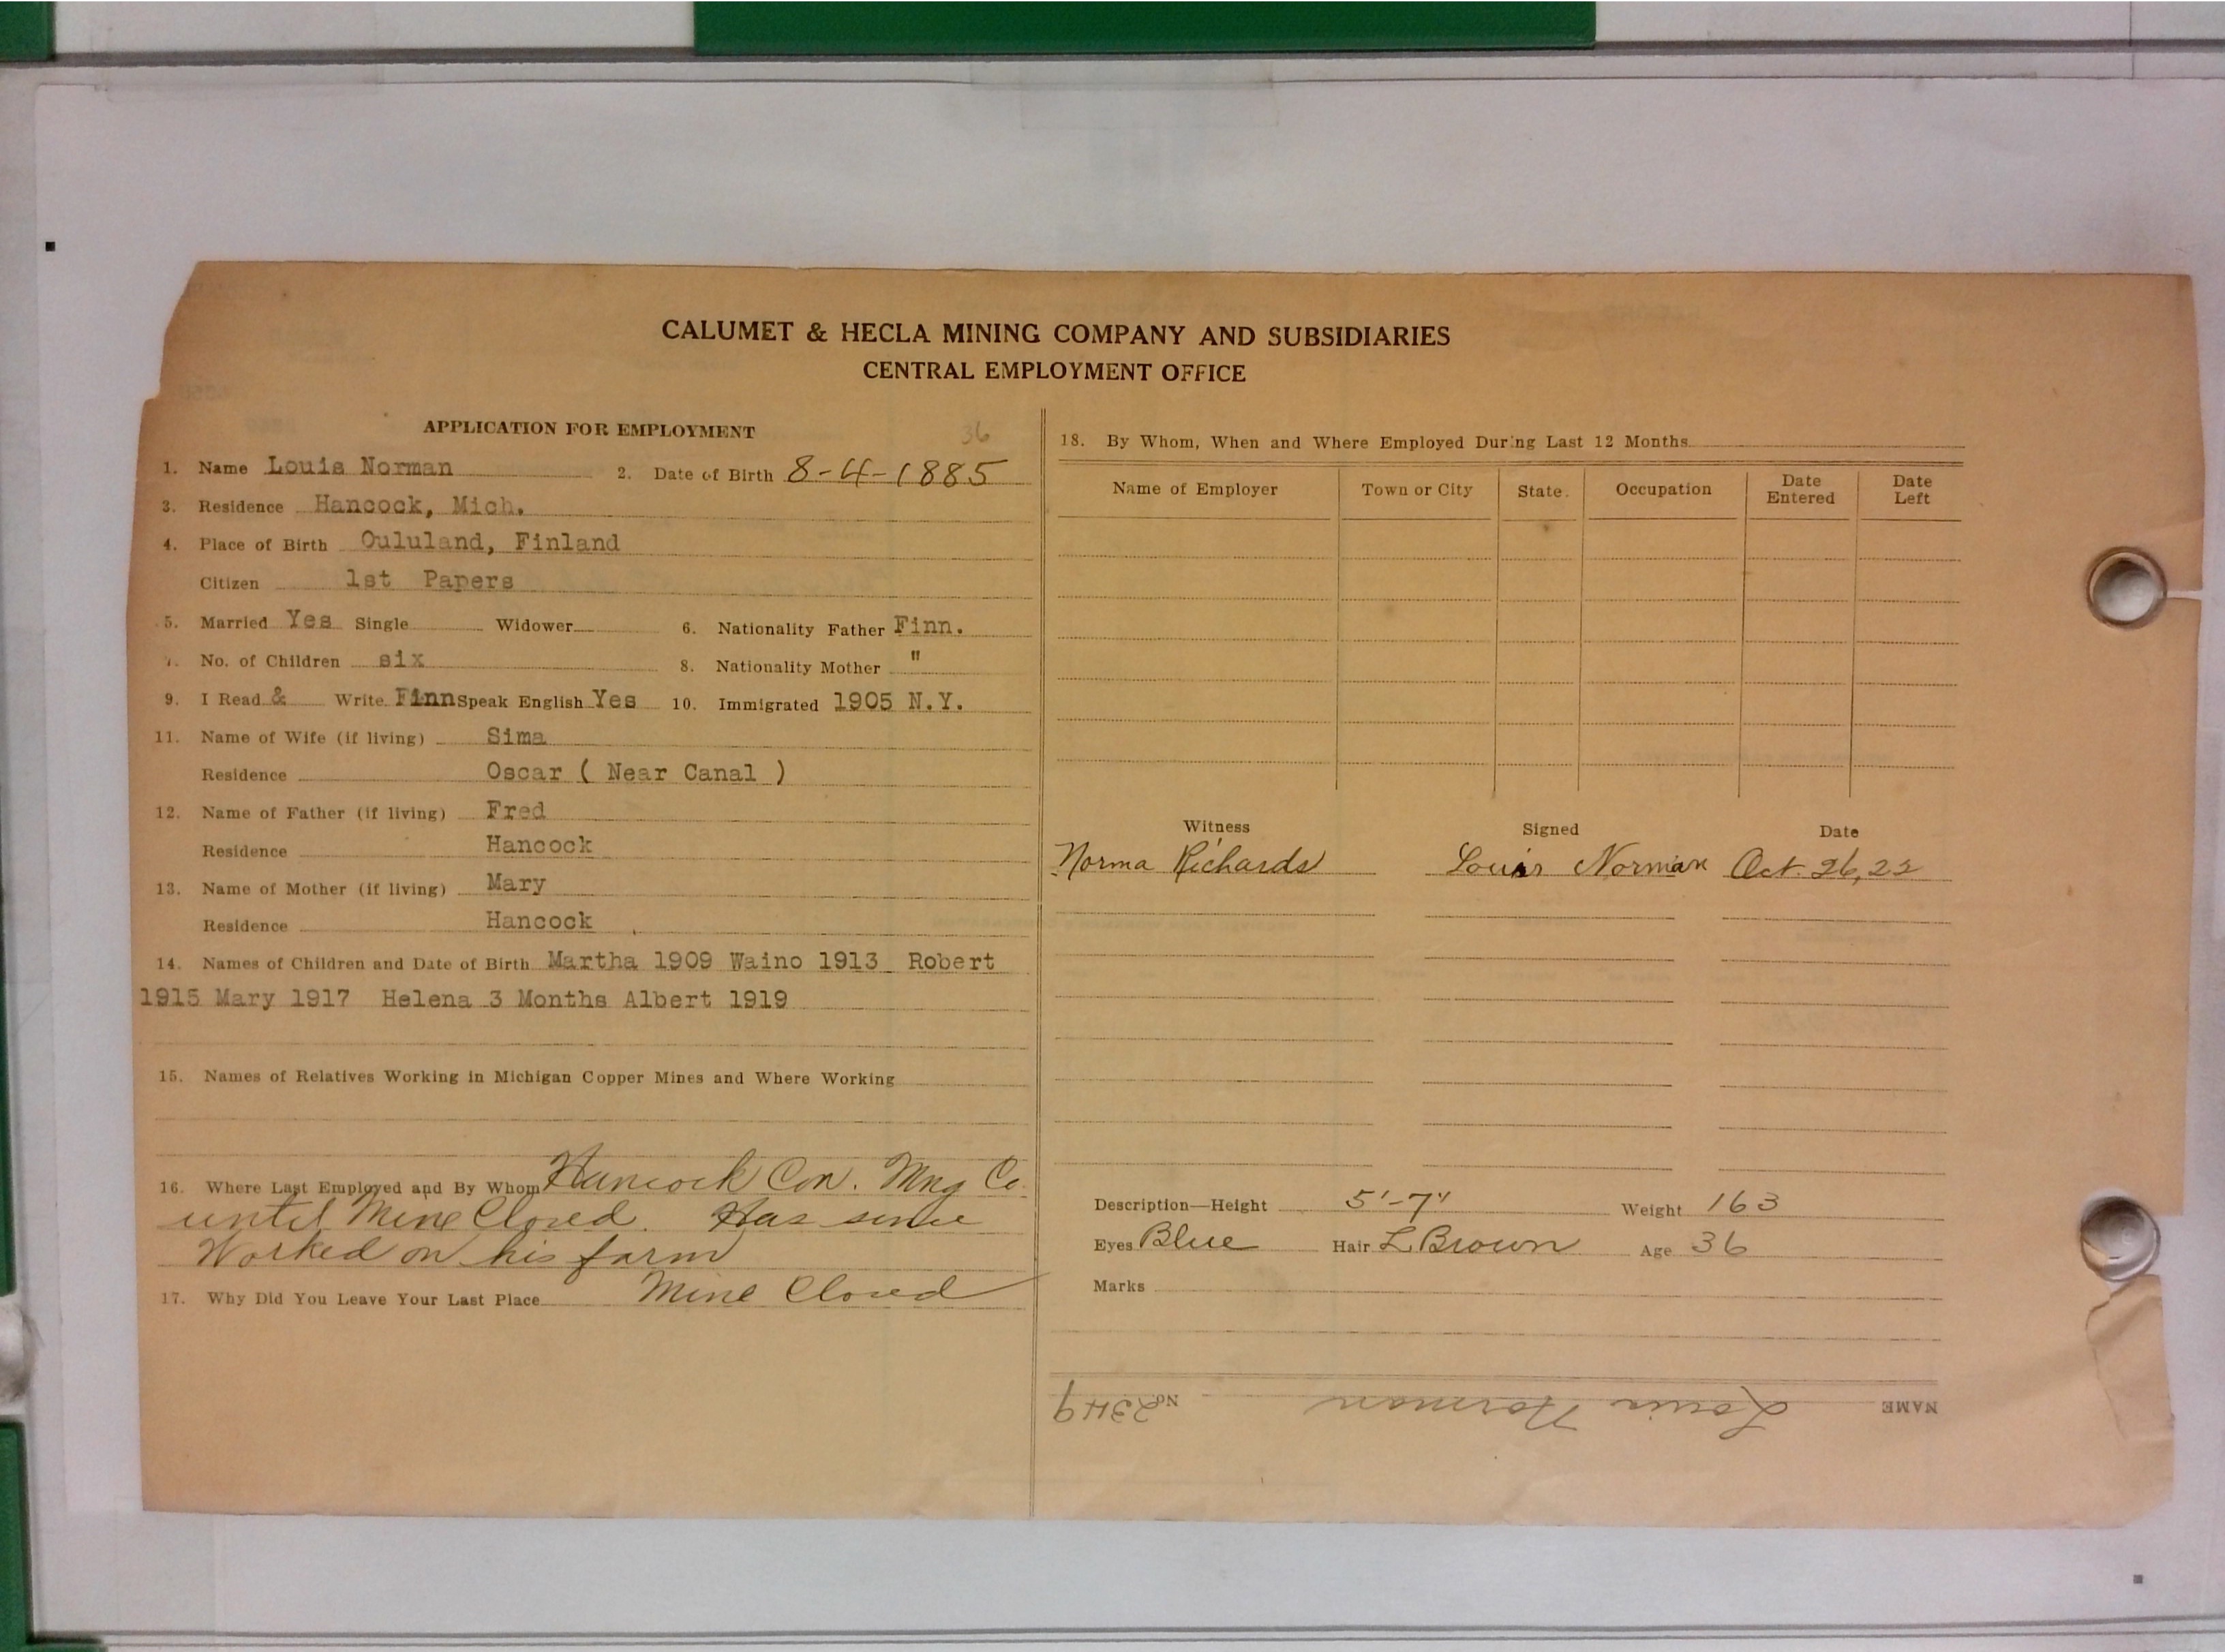 CALUMET & HECLA MINING COMPANY AND SUBSIDIARIES
CENTRAL EMPLOYMENT OFFICE
APPLICATION FOR EMPLOYMENT 36
1. Name Louis Norman 2. Date of Birth 8-4-1885
3. Residence Hancock, Mich.
4. Place of Birth Oululand, Finland
Citizen 1st Papers
5. Married Yes Single Widower 6. Nationality Father Finn.
7. No. of Children six 8. Nationality Mother "
9. I Read & Write Finn Speak English Yes 10. Immigrated 1905 N.Y.
11. Name of Wife (if living) Sima
Residence Oscar ( Near Canal )
12. Name of Father (if living) Fred
Residence Hancock
13. Name of Mother (if living) Mary
Residence Hancock
14. Names of Children and Date of Birth Martha 1909 Waino 1913 Robert
1915 Mary 1917 Helena 3 Months Albert 1919
15. Names of Relatives Working in Michigan Copper Mines and Where Working
16. Where Last Employed and By Whom Hancock Con. Mng Co.
until Mine Closed. Has since
Worked on his farm
17. Why Did You Leave Your Last Place Mine Closed
18. By Whom, When and Where Employed During Last 12 Months
Name of Employer Town or City State. Occupation Date Entered Date Left
Witness Signed Date
Norma Richards Louis Norman Oct. 26, 22
Description—Height 5'-7" Weight 163
Eyes Blue Hair L Brown Age 36
Marks
NAME Louis Norman No. 2349